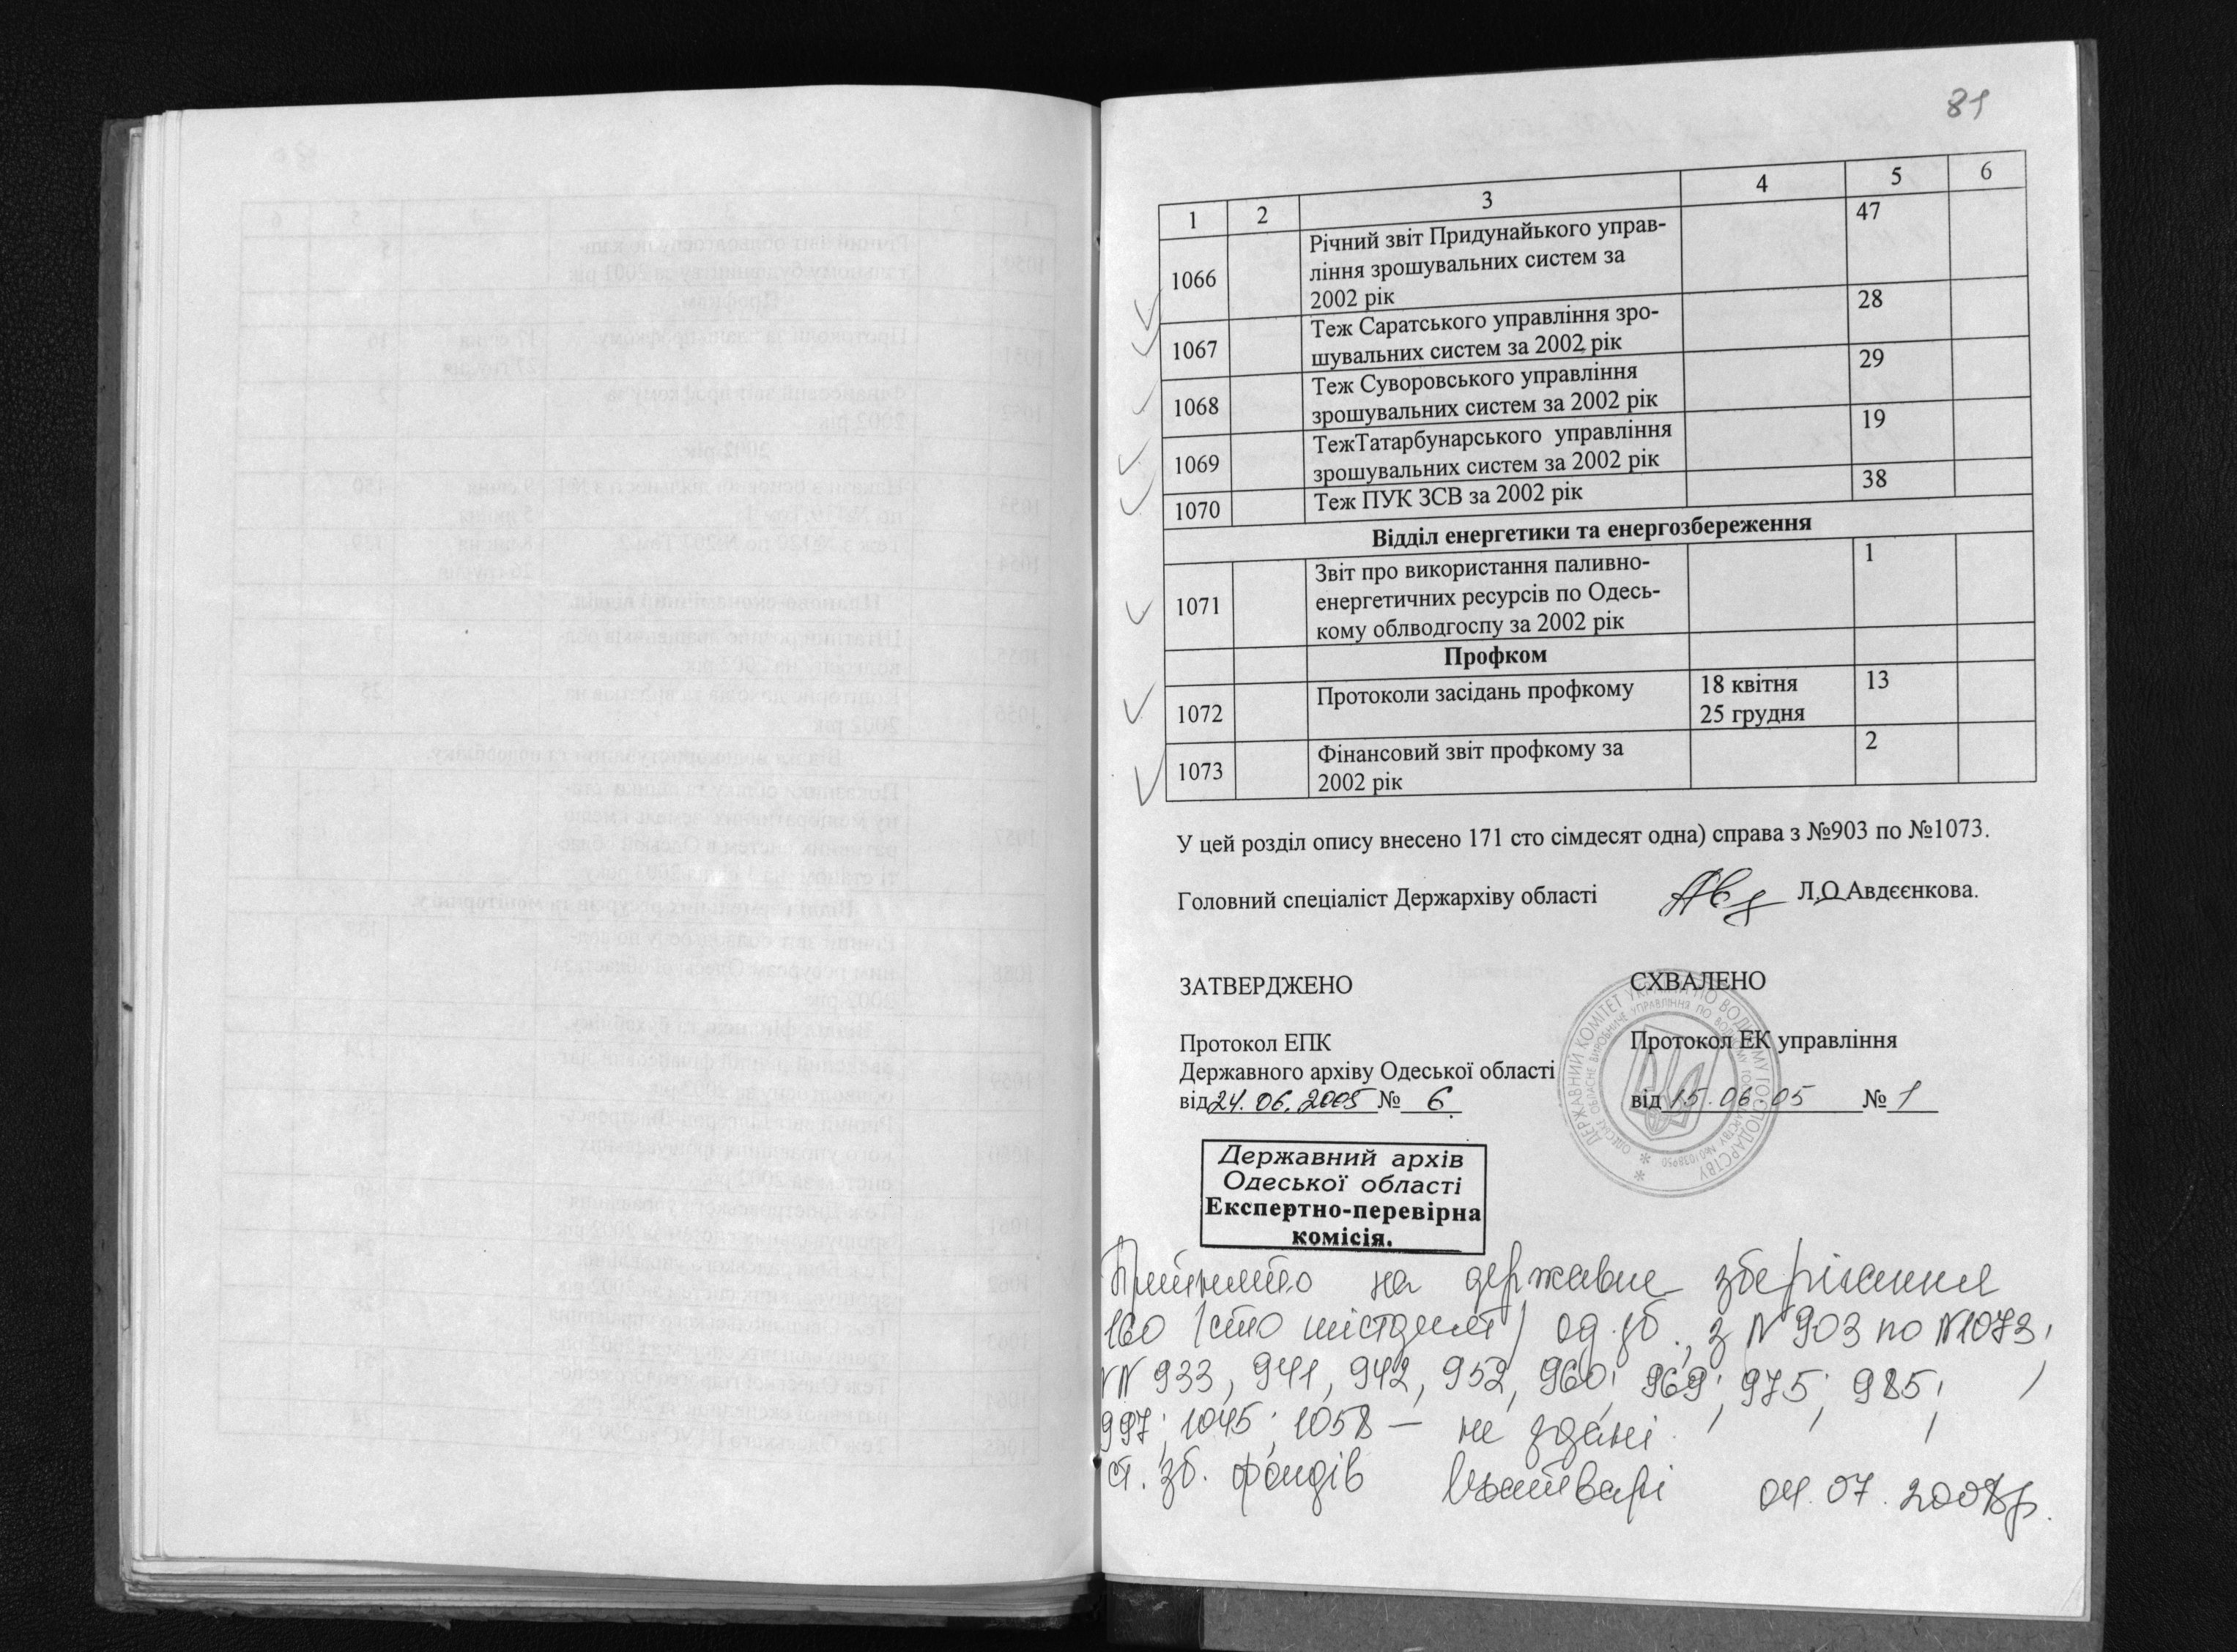 81
1 2 3 4 5 6
1066 Річний звіт Придунайького управ- 47
ління зрошувальних систем за
2002 рік
1067 Теж Саратського управління зро- 28
шувальних систем за 2002 рік
1068 Теж Суворовського управління 29
зрошувальних систем за 2002 рік
1069 ТежТатарбунарського управління 19
зрошувальних систем за 2002 рік
1070 Теж ПУК ЗСВ за 2002 рік 38
Відділ енергетики та енергозбереження
1071 Звіт про використання паливно- 1
енергетичних ресурсів по Одесь-
кому облводгоспу за 2002 рік
Профком
1072 Протоколи засідань профкому 18 квітня 13
25 грудня
1073 Фінансовий звіт профкому за 2
2002 рік
У цей розділ опису внесено 171 сто сімдесят одна) справа з №903 по №1073.
Головний спеціаліст Держархіву області Л.О Авдєєнкова.
ЗАТВЕРДЖЕНО
Протокол ЕПК
Державного архіву Одеської області
від 24.06.2005 № 6
СХВАЛЕНО
Протокол ЕК управління
від 15.06.05 № 1
ДЕРЖАВНИЙ КОМІТЕТ УКРАЇНИ ПО ВОДНОМУ ГОСПОДАРСТВУ
ОДЕСЬКЕ ОБЛАСНЕ ВИРОБНИЧЕ УПРАВЛІННЯ ПО ВОДНОМУ ГОСПОДАРСТВУ
Державний архів
Одеської області
Експертно-перевірна
комісія.
Прийнято на державне зберігання
160 (сто шістдесят) од.зб., з N 903 по N1073,
NN 933, 941, 942, 952, 960, 969, 975, 985,
997, 1045, 1058 — не здані.
ст. зб. фондів 04.07.2008р.